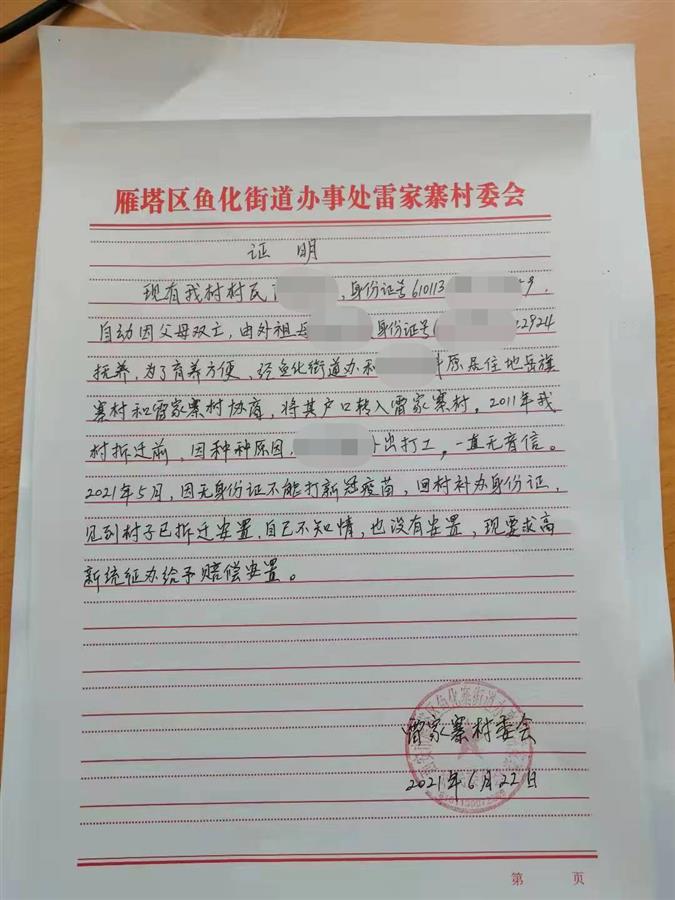 雁塔区鱼化街道办事处雷家寨村委会
证 明
现有我村村民 ，身份证号610113 9，
自幼因父母双亡，由外祖母 身份证号6 2924
抚养，为了育养方便、经鱼化街道办和 原居住地岳旗
寨村和雷家寨村协商，将其户口转入雷家寨村，2011年我
村拆迁前，因种种原因， 外出打工，一直无音信。
2021年5月，因无身份证不能打新冠疫苗，回村补办身份证，
见到村子已拆迁安置，自己不知情，也没有安置，现要求高
新统征办给予赔偿安置。
雷家寨村委会
2021年6月22日
第 页